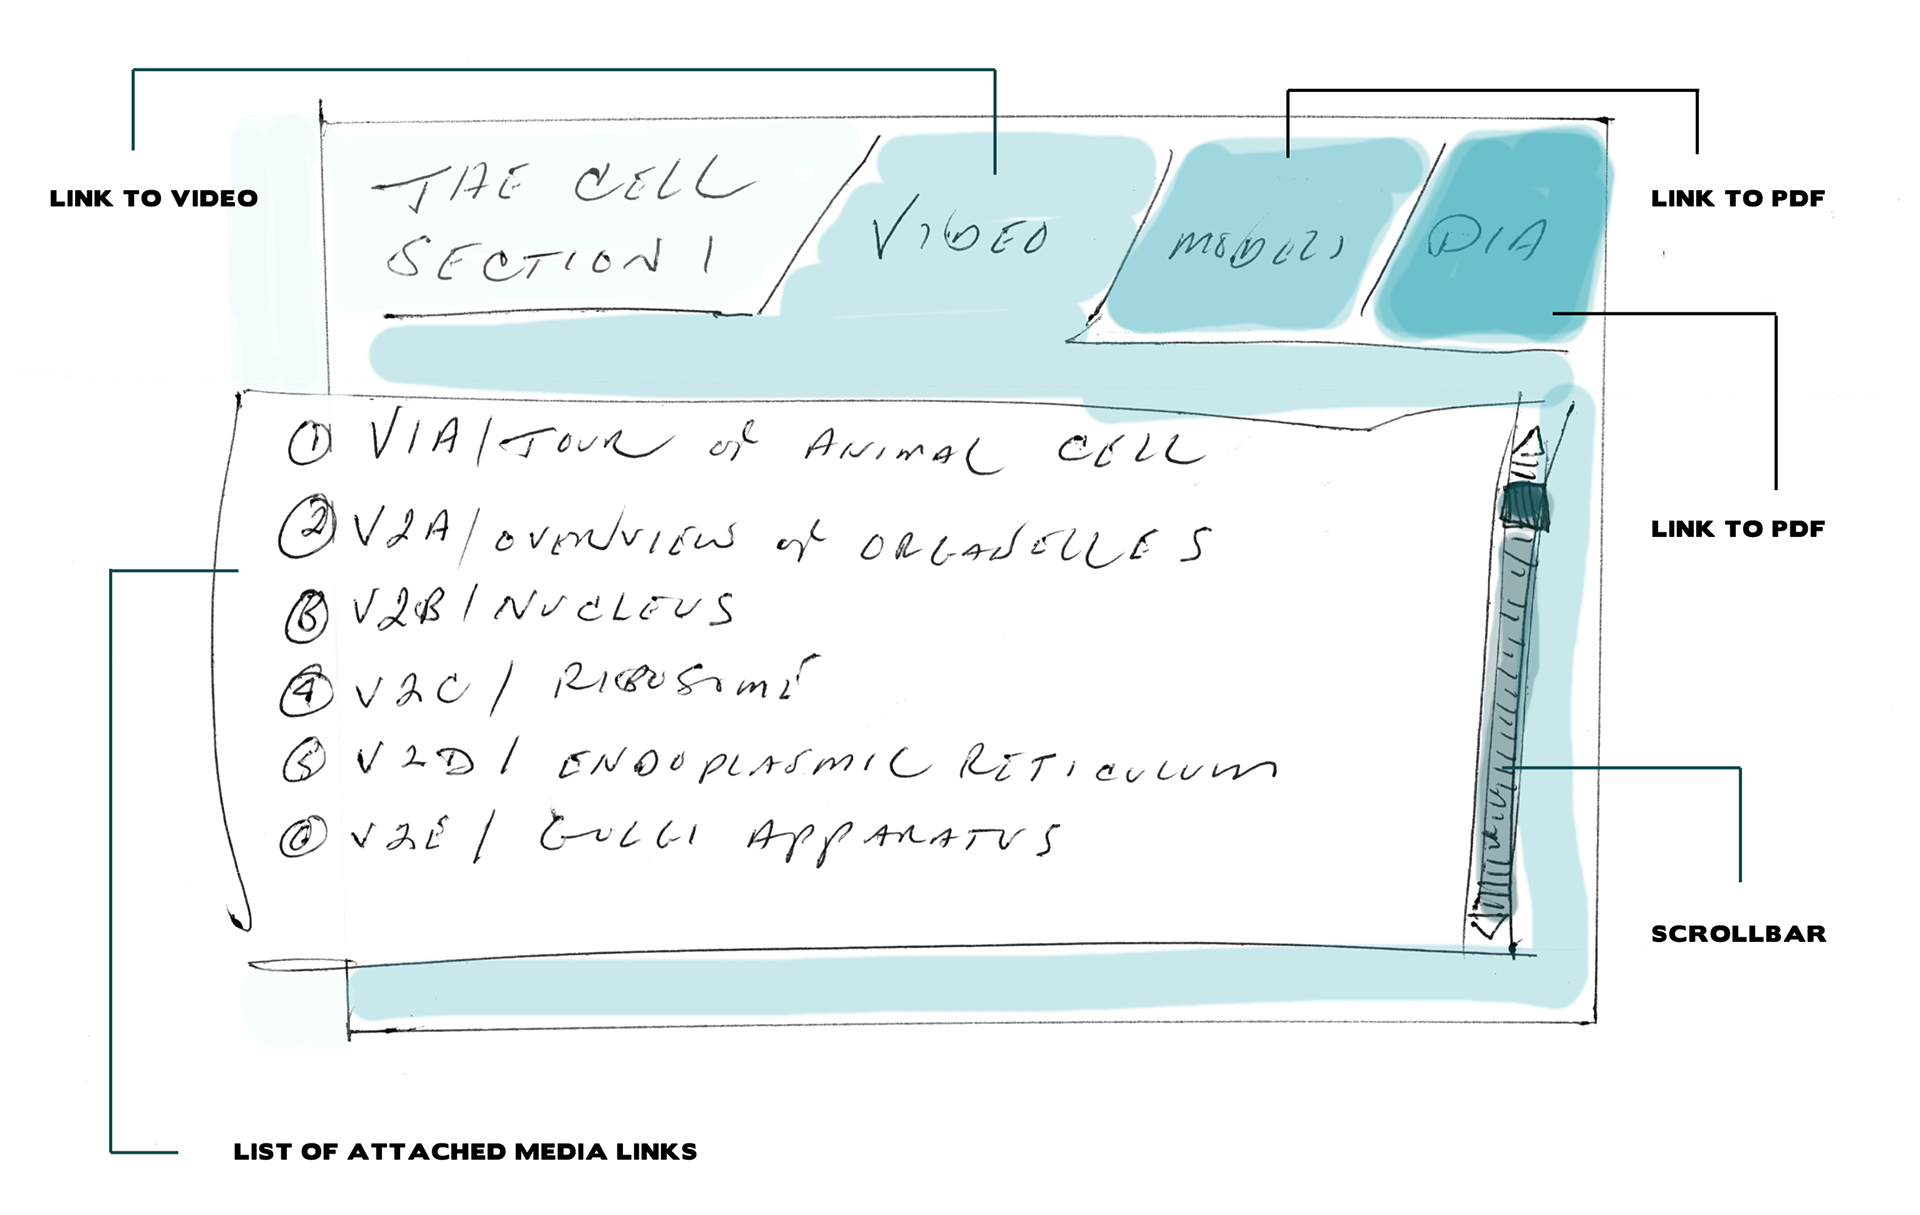 LINK TO VIDEO
THE CELL
SECTION 1
VIDEO
MODELS
DIA
LINK TO PDF
LINK TO PDF
1 V1A / TOUR of ANIMAL CELL
2 V2A / OVERVIEW of ORGANELLES
3 V2B / NUCLEUS
4 V2C / RIBOSOME
5 V2D / ENDOPLASMIC RETICULUM
6 V2E / GOLGI APPARATUS
SCROLLBAR
LIST OF ATTACHED MEDIA LINKS